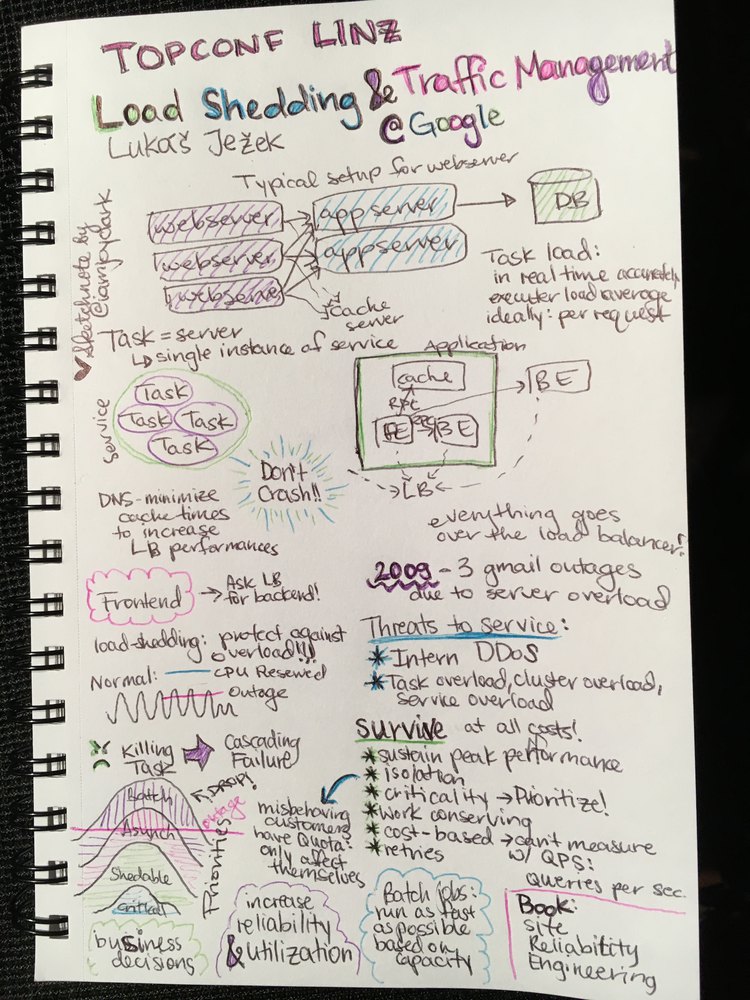 TOPCONF LINZ
Load Shedding & Traffic Management
@Google
Lukáš Ježek
Typical setup for webserver
webserver
webserver
webserver
appserver
appserver
DB
cache
server
Sketchnote by
@iamjoyclark
Task load:
in real time accurately
executer load average
ideally: per request
Task = server
↳ single instance of service
Service
Task
Task
Task
Task
Application
cache
RPC
BE
BE
LB
Don't
Crash!!
DNS - minimize
cache times
to increase
LB performances
everything goes
over the load balancer!
Frontend → Ask LB
for backend!
2009 - 3 gmail outages
due to server overload
load-shedding: protect against
overload!!!
Normal: CPU Reserved
Outage
Threats to service:
* Intern DDoS
* Task overload, cluster overload,
service overload
Killing
Task
Cascading
Failure
Survive at all costs!
* sustain peak performance
* isolation
* criticality → Prioritize!
* work conserving
* cost-based → can't measure
w/ QPS:
Querries per sec.
* retries
misbehaving
customers
have Quota:
only affect
themselves
DROP!
outage
Priorities
Batch
Asynch
Shedable
critical
business
decisions
increase
reliability
& utilization
Batch jobs:
run as fast
as possible
based on
capacity
Book:
Site
Reliability
Engineering